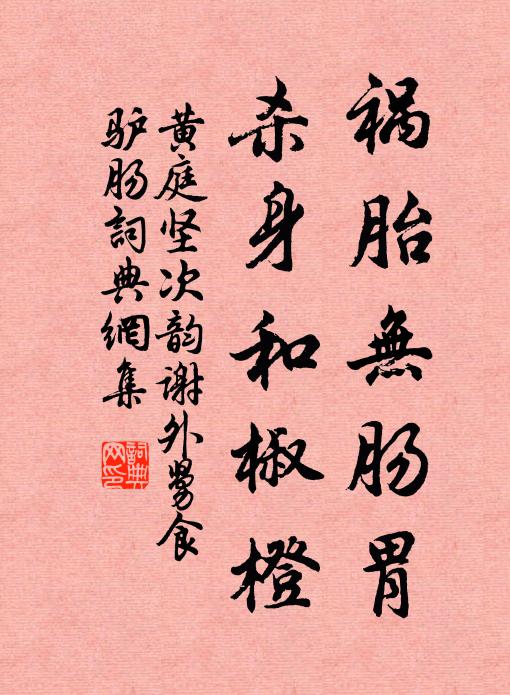 祸胎無肠胃
杀身和椒橙
黄庭坚次韵谢外舅食
驴肠詞典網集
詞典
网印